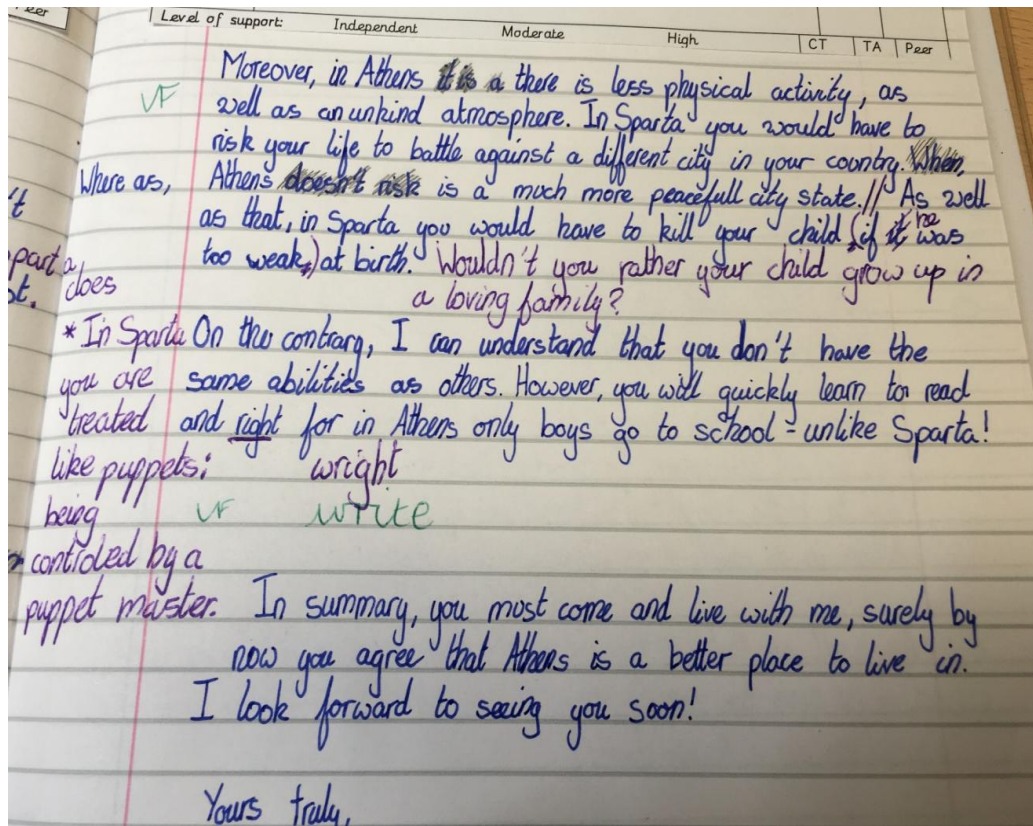 eer
Level of support: Independent Moderate High CT TA Peer
Moreover, in Athens there is less physical activity, as
VF well as an unkind atmosphere. In Sparta you would have to
risk your life to battle against a different city in your country. When,
Where as, Athens doesn't risk is a much more peacefull city state.// As well
't as that, in Sparta you would have to kill your child (if it he was
parta, too weak,) at birth. Wouldn't you rather your child grow up in
st. does a loving family?
* In Sparta On the contrary, I can understand that you don't have the
you are same abilities as others. However, you will quickly learn to read
treated and right for in Athens only boys go to school - unlike Sparta!
like puppets: wright
being VF write
controled by a
puppet master. In summary, you most come and live with me, surely by
now you agree that Athens is a better place to live in.
I look forward to seeing you soon!
Yours truly,